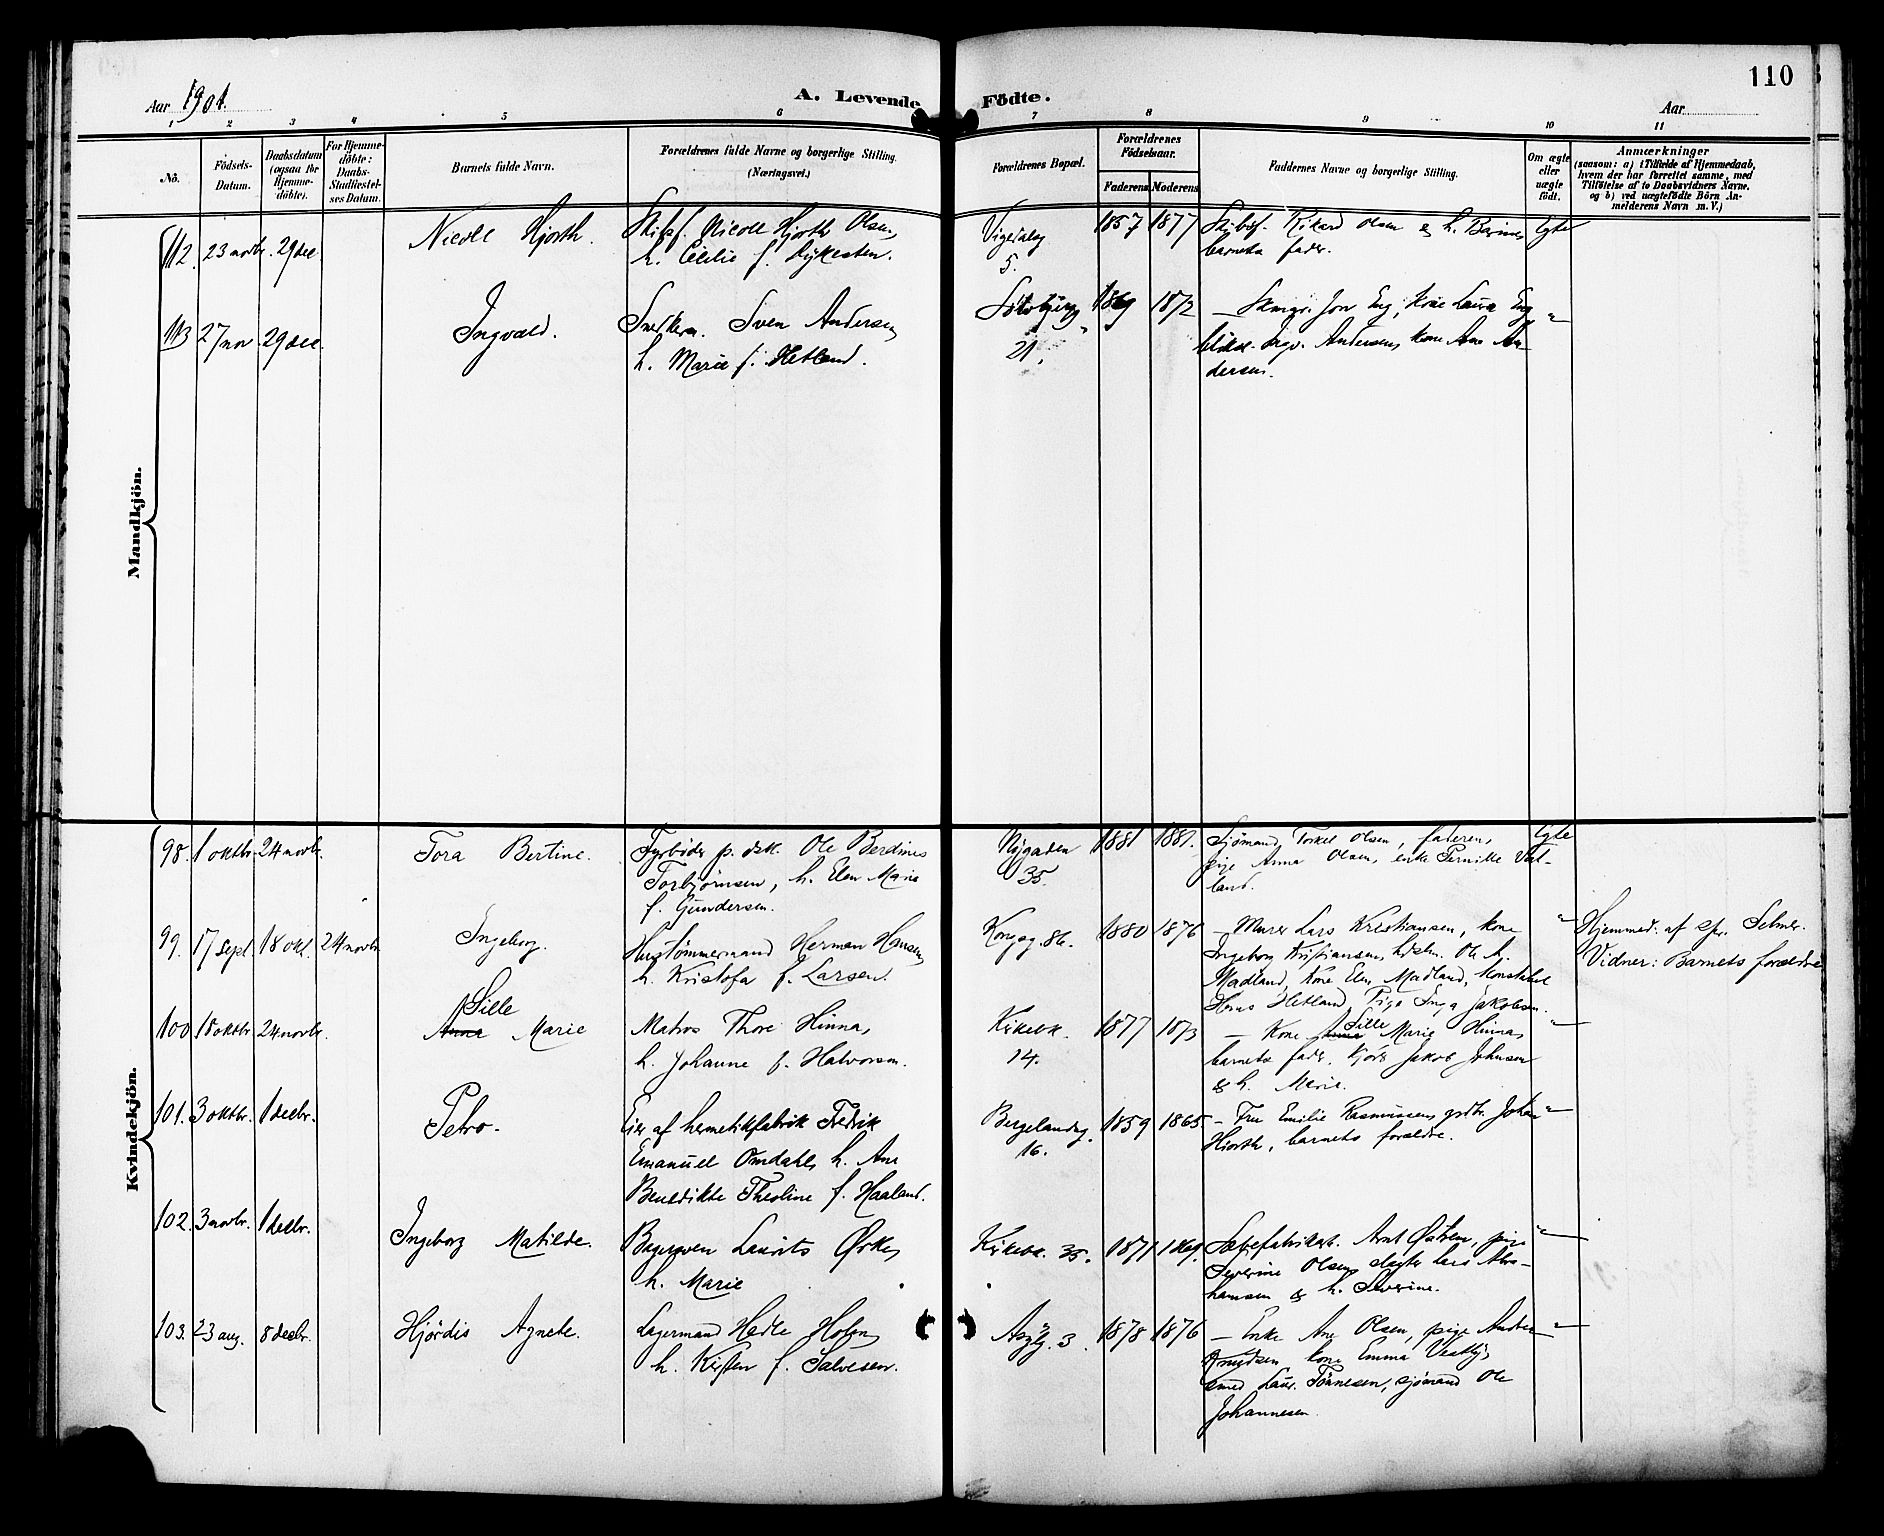 110
Aar 1901.
A. Levende Födte.
Aar
1 2 3 4 5 6 7 8 9 10 11
No.
Födsels-Datum.
Daabsdatum (ogsaa for Hjemme-döbte).
For Hjemme-döbte: Daabs-Stadfæstel-ses Datum.
Barnets fulde Navn.
Forældrenes fulde Navne og borgerlige Stilling. (Næringsvei.)
Forældrenes Bopæl.
Forældrenes Födselsaar.
Faderens Moderens
Faddernes Navne og borgerlige Stilling.
Om ægte eller uægte födt.
Anmærkninger
(saasom: a) i Tilfælde af Hjemmedaab, hvem der har forrettet samme, med Tilföielse af to Daabsvidners Navne, og b) ved uægtefödte Börn An-melderens Navn m. V.)
Mandkjön.
112. 23 novbr. 29 dec Nicoll Hjorth. Skibsf. Nicoll Hjorth Olsen,
h. Cecilie f.
5.
1857 1877 Skibsf. Rikard Olsen & h.
barnets fader.
Egte
113 27 nov. 29 dec. Ingvald. Snedkerm. Sven Andersen
h. Marie f. Hetland.
21.
1869 1872 Jon Eng, kone Laura Eng
Andersen, kone Ane An-
dersen.
"
Kvindekjön.
98. 1 oktbr. 24 novbr. Tora Bertine. Fyrböder p. dsk. Ole Berdines
Torbjörnsen, h. Elen Marie
f. Gundersen.
Nygaden
35.
1881 1881. Sjömand Torkel Olsen, faderen,
pige Anna Olsen, enke Pernille Vat-
land.
Egte
99. 17 sept. 18 okt. 24 novbr. Ingeborg. Hustömmermand Herman Hansen
h. Kristofa f. Larsen.
Kongsg. 86. 1880 1876 — Murer Lars Kristiansen, kone
Ingeborg Kristiansen, Ole
Madland, kone Elen Madland, konstabel
Hetland, Pige Inga Jakobsen.
" Hjemmed. af spr. Selmer.
Vidner: Barnets forældre
100 18 oktbr. 24 novbr. Sille
Anna Marie Matros Thore Hinna,
h. Johanne f. Halvorsen.
Kirkebk.
14.
1877 1873 — Kone Anna Sille Marie Hinna,
barnets fader. Kjörer Jakob Johnsen
& h. Marie.
"
101. 3 oktbr. 1 decbr. Petra. Eier af hermetikfabrik Fredrik
Emanuel Omdahl, h. Ane
Benedikte Theoline f. Haaland.
Bergelandsg.
16.
1859 1865 — Fru Emilie Rasmussen, Johan
Hjorth, barnets forældre.
"
102. 3 novbr. 1 decbr. Ingeborg Matilde. Bagersven Laurits Örke,
h. Marie
Kirkebk. 35. 1871 Sæbefabrikant. Arnt pige
Severine Olsen, slagter Lars Abra-
hamsen & h. Severine.
"
103. 23 aug. 8 decbr. Hjördis Agnete. Lagermand Hedle
h. Kirsten f. Salvesen.
3 1878 1876 — Enke Ane Olsen, pige Andrea
Knudsen, kone Emma
smed Laur. Tönnesen, sjömand Ole
Johannesen.
"